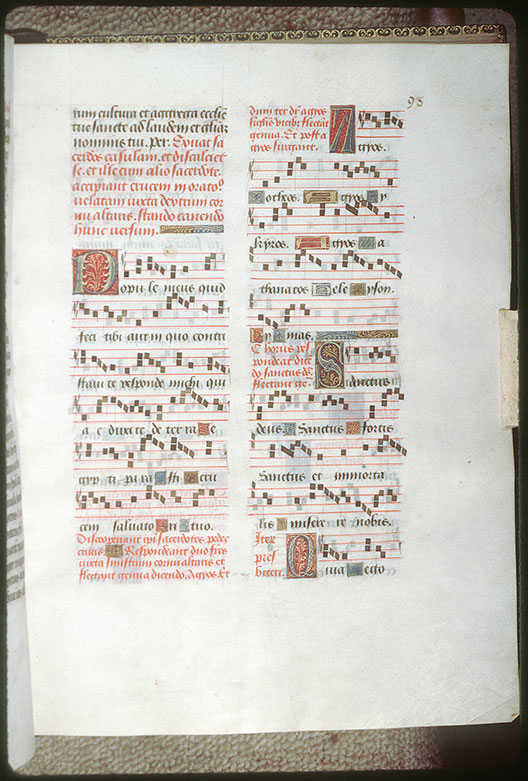 93
rum cultura et aggrega ecclie
tue sancte ad laudem et gliam
nominis tui. per. Exuat sa
cerdos casulam, et disculciet
se. et ille cum alio sacerdote.
accipiant crucem in orato
velatam iuxta dextrum cor
nu altaris. stando canendo
hunc versum.
Popule meus quid
feci tibi aut in quo contri
staui te responde michi. qui
a eduxi te de terra E
gypti parasti cru
cem saluatori tuo.
Discoperiant ipi sacerdotes pedem
crucis Respondeant duo frs
iuxta sinistrum cornu altaris et
flectant genua dicendo. Agyos. Et
dum ter dr agyos
singlis vicibz flectat
genua. Et post agyos surgant.
Agyos.
otheos. Agyos y
skyros. Agyos a
thanatos eleyson.
ymas.
Chorus res
pondeat dice
do sanctus
flectant ge.
Sanctus
deus Sanctus fortis
Sanctus et immorta
lis miserere nobis.
Iter
pres
biteri.
Quia e ecto